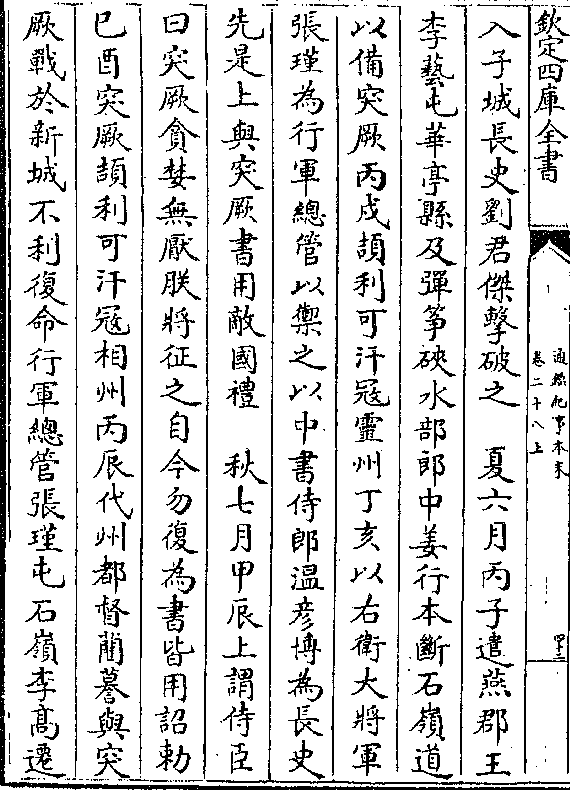 欽定四庫全書
通鑑紀事本末
卷二十八上
四十二
入子城長史劉君傑擊破之　夏六月丙子遣燕郡王
李藝屯華亭縣及彈筝硤水部郎中姜行本斷石嶺道
以備突厥丙戌頡利可汗寇靈州丁亥以右衛大將軍
張瑾為行軍總管以禦之以中書侍郎溫彦博為長史
先是上與突厥書用敵國禮　秋七月甲辰上謂侍臣
曰突厥貪婪無厭朕將征之自今勿復為書皆用詔勅
巳酉突厥頡利可汗寇相州丙辰代州都督藺謩與突
厥戰於新城不利復命行軍總管張瑾屯石嶺李髙遷